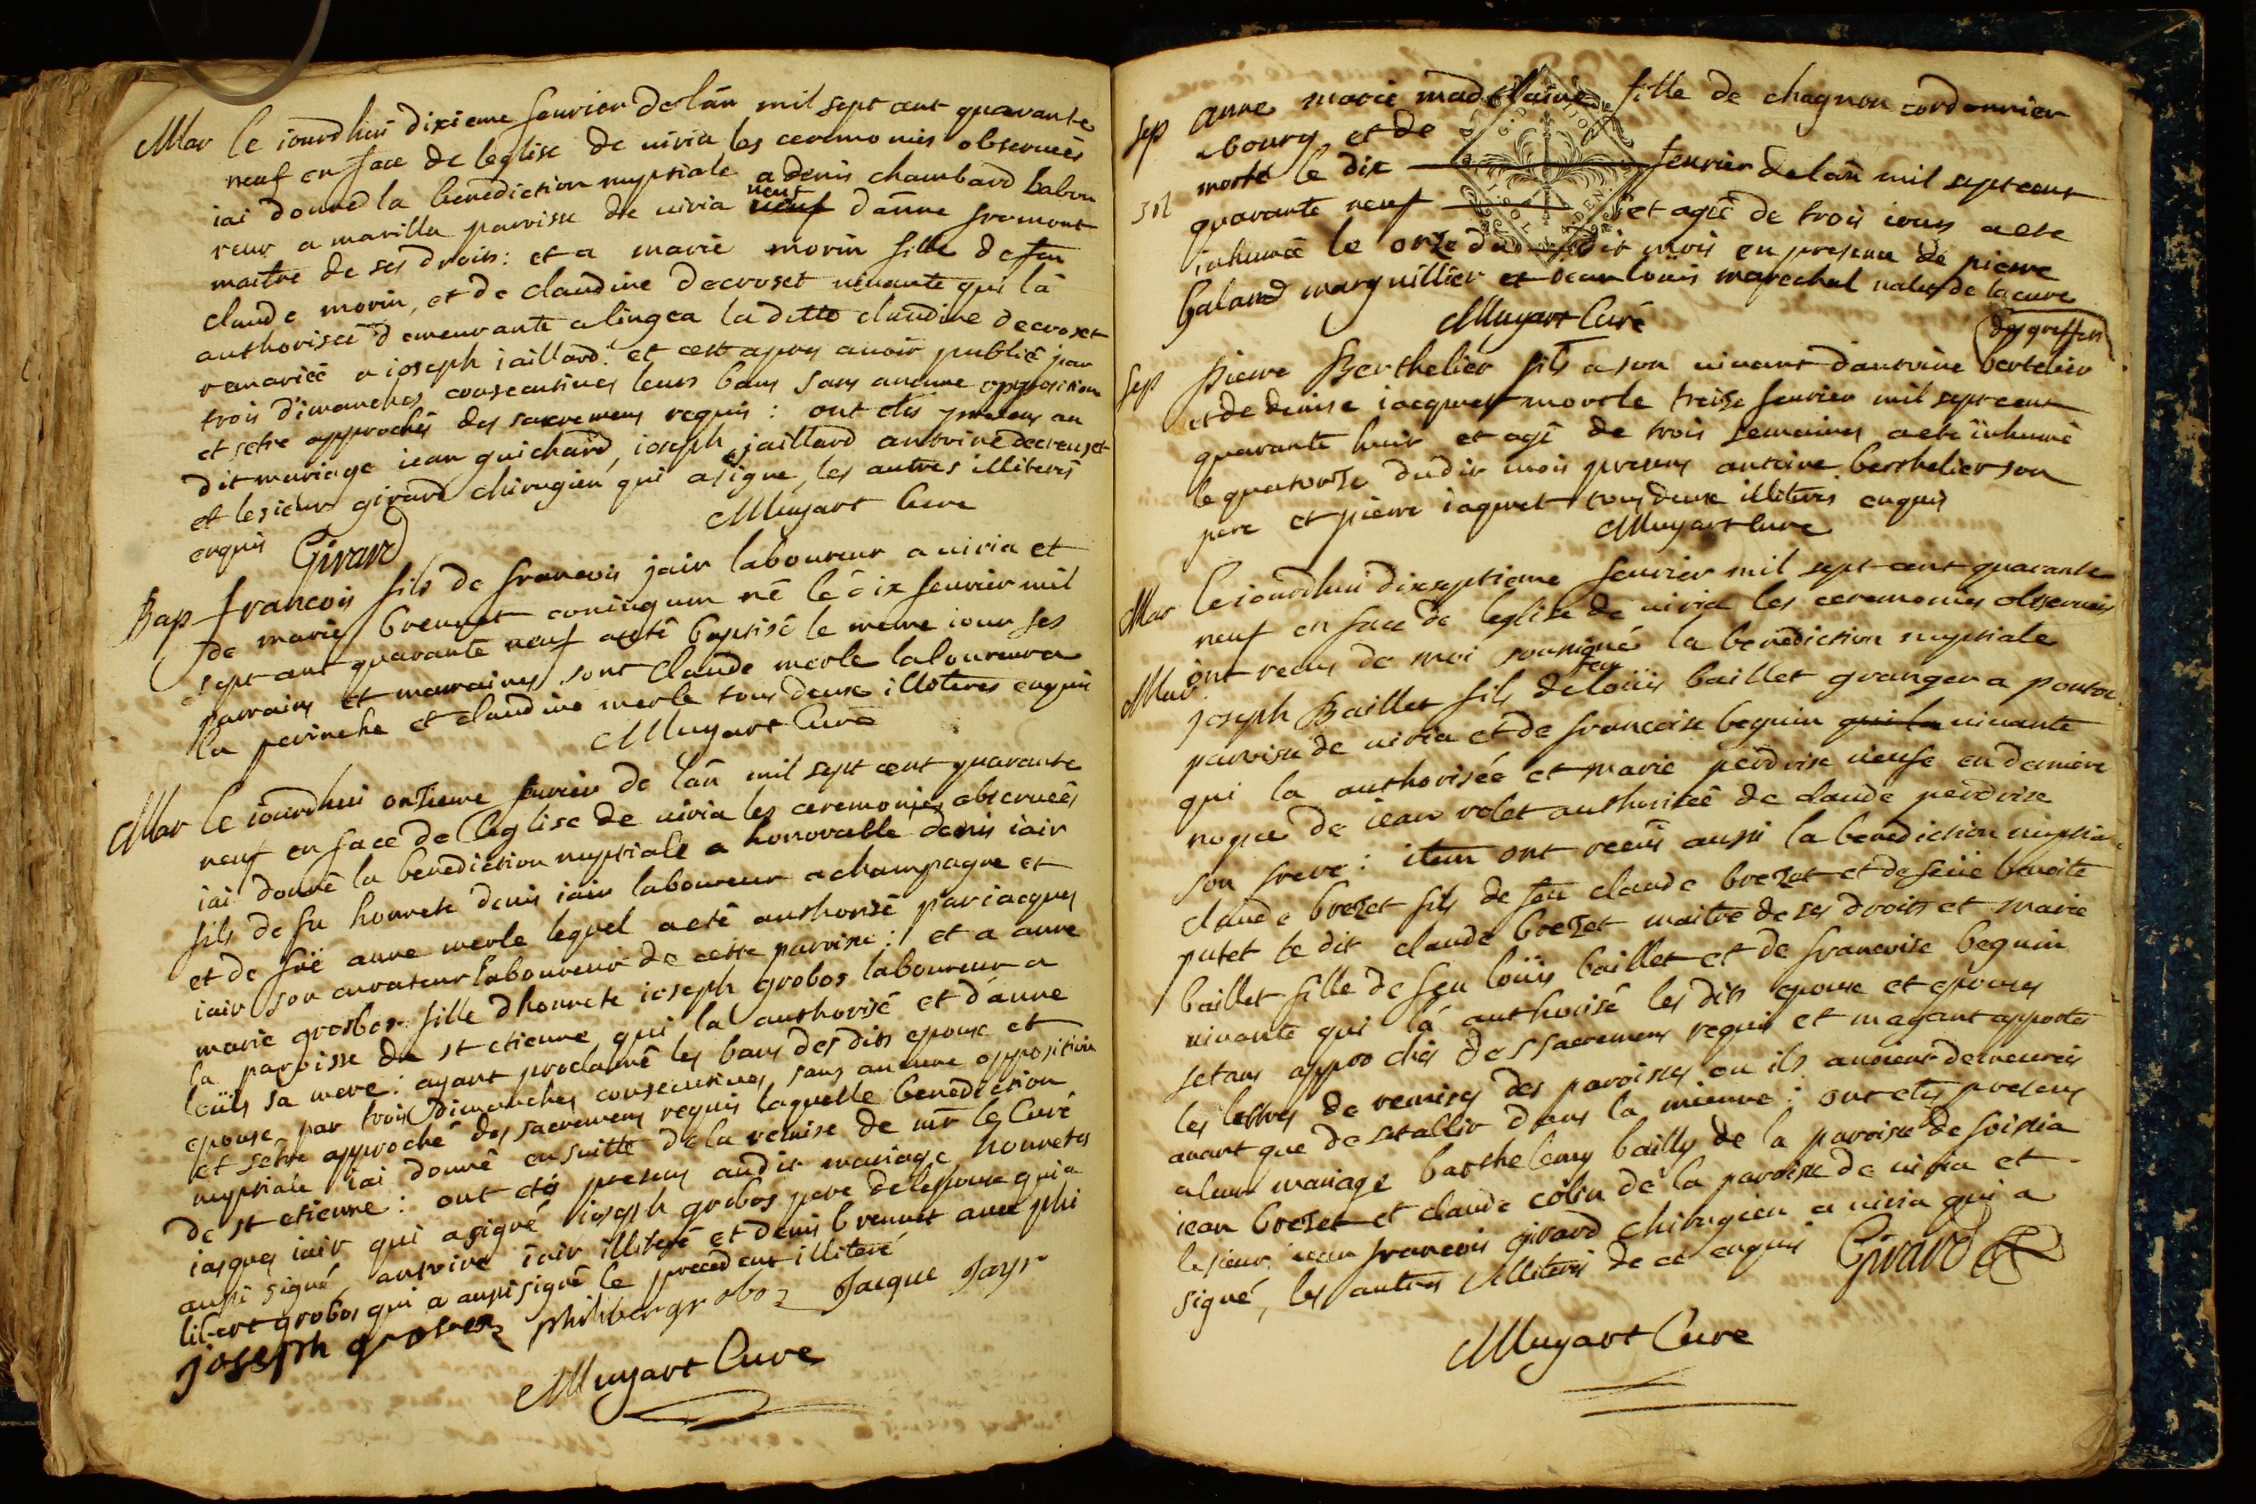 Mar le iourdhui dixieme feurier de lan mil sept cent quarante
neuf en face de leglise de uiria les ceremonies obseruées
iai donné la benediction nuptiale a denis chambard labou
reur a marilla paroisse de uiria ueuf danne fromont
maitre de ses droits: et a marie morin fille de feu
claude morin, et de claudine decroset uiuante qui la
authorisée demeurante a lingea laditte claudine decroset
remariée a ioseph iaillard: et cest apres auoir publié par
trois dimanches consecutiues leurs bans sans aucune opposition
et setre approchés des sacremens requis: ont etés presens au
dit mariage iean guichard, ioseph jaillard antoine decreuset
et le sieur girard chirugien qui a signe, les autres illiterés
enquis Girard Muyart Cure
Bap francois fils de francois jair laboureur a uiria et
de marie brennet coniugum né le dix feurier mil
sept cent quarante neuf aeté baptisé le meme iour ses
parrains et marraines sont claude merle laboureur a
la perinche et claudine merle tous deux illiteres enquis
Muyart Curé
Mar le iourdhui onzieme feurier de lan mil sept cent quarante
neuf en face de leglise de uiria les ceremonies obseruées
iai donné la benediction nuptiale a honorable denis iair
fils de fu honnete denis iair laboureur a champagne et
et de fuë anne merle lequel aeté authorisé par iacques
iair son curateur laboureur de cette paroisse: et a anne
marie grosbos fille dhonnete ioseph grobos laboureur a
la paroisse de st etienne qui la authorisé et danne
loüis sa mere: ayant proclamé les bans des dits epoux et
epouse par trois dimanches consecutiues sans aucune opposition
et setre approché des sacremens requis laquelle benediction
nuptiale iai donné en suitte de la remise de mr le Curé
de st etienne: ont etés presens audit mariage honnetes
iasques iair qui a signé ioseph grobos pere de lepouse qui a
aussi signé, antoine iair illiteré et denis brennet auec phi
libert grobos qui a aussi signé le precedent illiteré
joseph grosboz philibergroboz Jacque Jayr
Muyart Cure
Sep anne marie madelaine fille de chagnon cordonnier
a bourg et de
morte le dix feurier de lan mil sept cent
quarante neuf et agée de trois iours aete
inhumée le onze du dit mois en presence de pierre
Galand marguillier et iean louis marechal ualet de la cure
Muyart Curé
des greffets
Sep Pierre Berthelier fils a son uiuant dantoine bertelier
et de denise iacquet mort le treise feurier mil sept cent
quarante huit et agé de trois semaines aete inhumé
le quatorse dudit mois presens antoine berthelier son
pere et pierre iaquet tous deux illiterés enquis
Muyart Cure
Mar le iourdhui dixseptieme feurier mil sept cent quarante
neuf en face de leglise de uiria les ceremonies obseruées
ont receus de moi sousigné la benediction nuptiale
Mar joseph Baillet fils de feu loüis baillet granger a ponton
paroisse de uiria et de francoise beguin qui la uiuante
qui la authorisée et marie perdrise ueufe en derniere
nopce de iean rolet authorisée de claude perdrise
son frere: item ont receus aussi la benediction nuptiale
claude brezet fils de feu claude brezet et de feüe benoite
putet le dit claude brezet maitre de ses droits et marie
baillet fille de feu loüis baillet et de francoise beguin
uiuante qui la authorisé les dits epoux et epouses
setans approchés des sacremens requis et mayant apportés
les lettres de remises des paroisses ou ils auoient demeurées
auant que de setablir dans la mienne: ont etés presens
a leur mariage barthelemy bailly de la paroisse de foissia
iean brezet et claude colin de la paroisse de uiria et
le sieur iean francois girard chirugien a uiria qui a
signé, les autres illiterés de ce enquis Girard
Muyart Cure